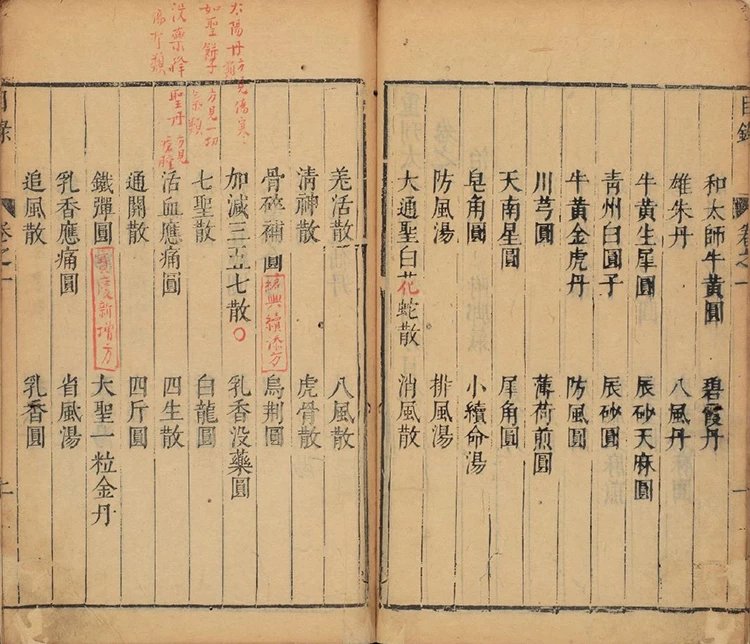 目錄
卷之一
和太師牛黃圓 碧霞丹
雄朱丹 八風丹
牛黃生犀圓 辰砂天麻圓
青州白圓子 辰砂圓
牛黃金虎丹 防風圓
川芎圓 薄荷煎圓
天南星圓 犀角圓
皂角圓 小續命湯
防風湯 排風湯
大通聖白花蛇散 消風散
羌活散 八風散
清神散 虎骨散
骨碎補圓 紹興續添方 烏荆圓
加減三五七散 乳香没藥圓
七聖散 白龍圓
活血應痛圓 四生散
通關散 四斤圓
鐵彈圓 寶慶新增方 大聖一粒金丹
乳香應痛圓 省風湯
追風散 乳香圓
太陽丹方見傷寒類
如聖餅子方見一切氣類
聖丹方見
目錄
卷之一